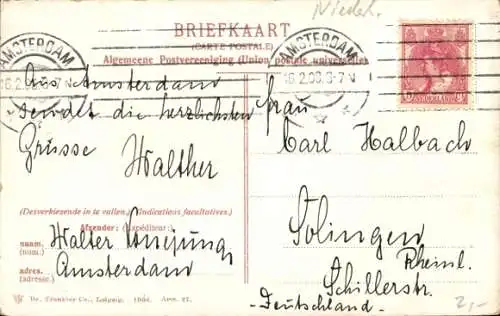 Niederl.
BRIEFKAART
(CARTE POSTALE)
Algemeene Postvereeniging (Union postale universelle)
AMSTERDAM
AMSTERDAM
16.2.06. 6-7 N
NEDERLAND
Aus Amsterdam
sendet die herzlichsten
Grüsse Walther
Frau
Carl Halbach
Solingen
Rheinl.
Schillerstr.
-Deutschland-
(Desverkiezende in te vullen.) (Indications facultatives.)
Afzender: (Expéditeur:)
naam. (nom.) Walter
adres. (adresse.) Amsterdam
Dr. Trenkler Co., Leipzig. 1905. Amst. 27.
2,-